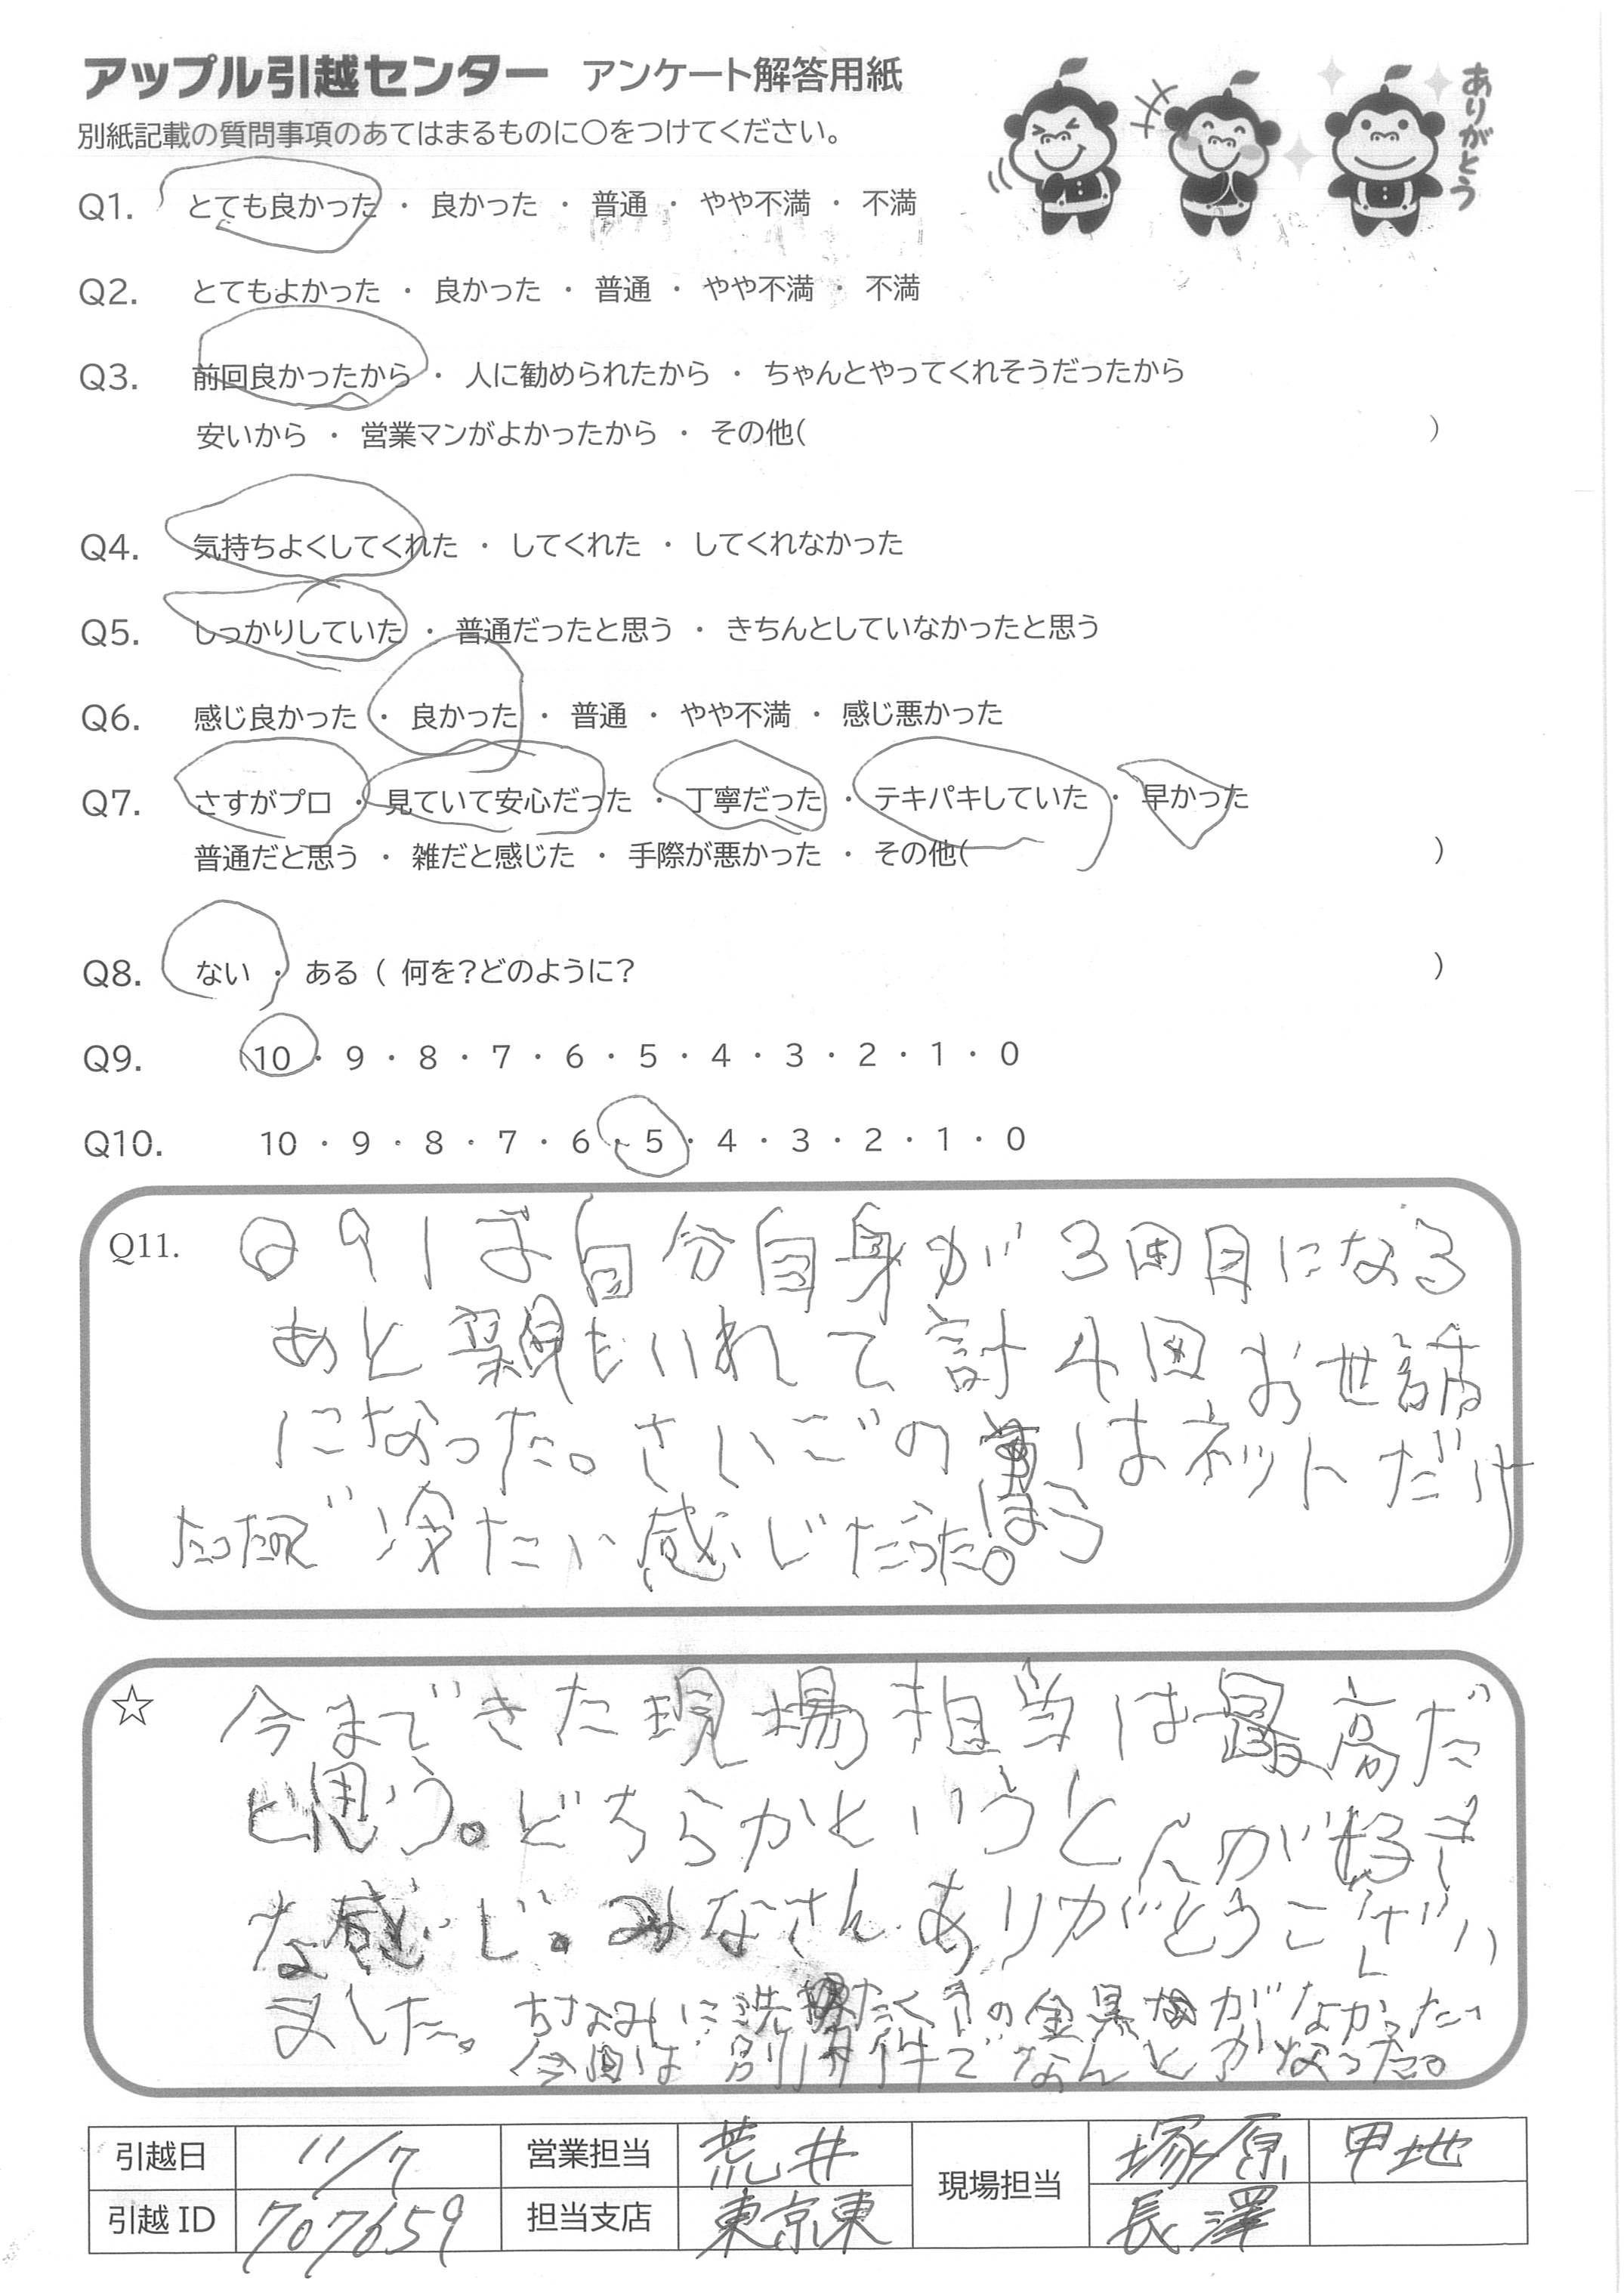 アップル引越センター アンケート解答用紙
ありがとう
別紙記載の質問事項のあてはまるものに○をつけてください。
Q1. とても良かった ・ 良かった ・ 普通 ・ やや不満 ・ 不満
Q2. とてもよかった ・ 良かった ・ 普通 ・ やや不満 ・ 不満
Q3. 前回良かったから ・ 人に勧められたから ・ ちゃんとやってくれそうだったから
安いから ・ 営業マンがよかったから ・ その他( )
Q4. 気持ちよくしてくれた ・ してくれた ・ してくれなかった
Q5. しっかりしていた ・ 普通だったと思う ・ きちんとしていなかったと思う
Q6. 感じ良かった ・ 良かった ・ 普通 ・ やや不満 ・ 感じ悪かった
Q7. さすがプロ ・ 見ていて安心だった ・ 丁寧だった ・ テキパキしていた ・ 早かった
普通だと思う ・ 雑だと感じた ・ 手際が悪かった ・ その他( )
Q8. ない ・ ある ( 何を?どのように? )
Q9. 10 ・ 9 ・ 8 ・ 7 ・ 6 ・ 5 ・ 4 ・ 3 ・ 2 ・ 1 ・ 0
Q10. 10 ・ 9 ・ 8 ・ 7 ・ 6 ・ 5 ・ 4 ・ 3 ・ 2 ・ 1 ・ 0
Q11. Q9は自分自身が3回目になる
あと親もいれて計4回お世話
になった。さいごの はネットだけ
だったので冷たい感じだった。
☆ 今まできた現場担当は最高だ
と思う。どちらかというと 人が好き
な感じ。みなさんありがとうござい
ました。ちなみに洗たくきの金具 がなかった
今回は別 件でなんとかなった。
引越日 11/7 営業担当 荒井 現場担当 塚原 甲地
引越ID 707659 担当支店 東京東 長澤